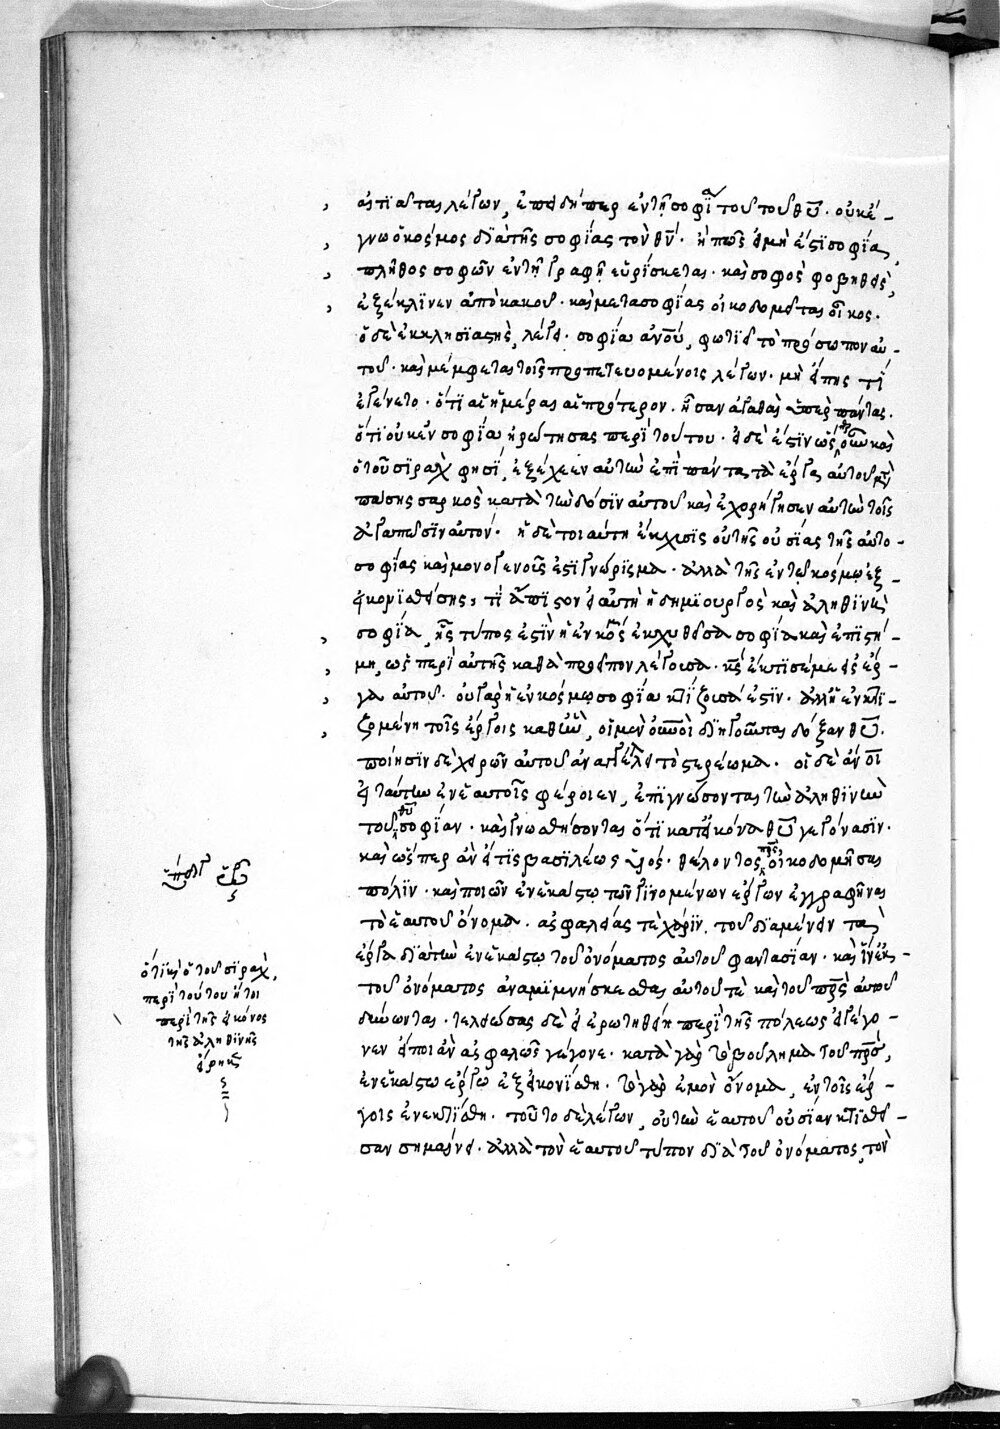 αἰτιᾶται λέγων, ἐπειδήπερ ἐν τῆ σοφίᾳ τοῦ τοῦ θῦ. οὐκ ἔ-
γνω ὁ κόσμος διὰ τῆς σοφίας τὸν θν. ἢ πῶς εἰ μὴ ἔστι σοφία,
πλῆθος σοφῶν ἐν τῆ γραφῆ εὑρίσκεται. καὶ σοφὸς φοβηθεὶς,
ἐξέκλινεν ἀπὸ κακοῦ. καὶ μετὰ σοφίας οἰκοδομεῖται οἶκος.
ὁ δὲ ἐκκλησιαστὴς, λέγει. σοφία ἀνοῦ, φωτιεῖ τὸ πρόσωπον αὐ-
τοῦ. καὶ μέμφεται τοῖς προπετευομένοις λέγων. μὴ εἴπης τί
ἐγένετο. ὅτι αἱ ἡμέραι αἱ πρότερον. ἦσαν ἀγαθαὶ ὑπὲρ ταύτας.
ὅτι οὐκ ἐν σοφία ἠρώτησας περὶ τούτου. εἰ δὲ ἔστιν ὡς καὶ
ὁ τοῦ σιρὰχ φησὶ, ἐξέχεεν αὐτὴν ἐπὶ πάντα τὰ ἔργα αὐτοῦ μετὰ
πάσης σαρκὸς κατὰ τὴν δόσιν αὐτοῦ καὶ ἐχορήγησεν αὐτὴν τοῖς
ἀγαπῶσιν αὐτόν. ἡ δὲ τοιαύτη ἔκχυσις οὐ τῆς οὐσίας τῆς αὐτο-
σοφίας καὶ μονογενοῦς ἐστὶ γνώρισμα. ἀλλὰ τῆς ἐν τῷ κόσμῳ ἐξ-
εικονισθείσης, τί ἄπιστον εἰ αὐτὴ ἡ δημιουργὸς καὶ ἀληθινὴ
σοφία, ἧς τύπος ἐστὶν ἡ ἐν κόσμῳ ἐκχυθεῖσα σοφία καὶ ἐπιστή-
μη, ὡς περὶ αὐτῆς καθὰ προεῖπον λέγουσα. κς ἔκτισέ με εἰς ἔρ-
γα αὐτοῦ. οὐ γὰρ ἡ ἐν κόσμῳ σοφία κτίζουσά ἐστιν. ἀλλ' ἡ ἐγκτι-
ζομένη τοῖς ἔργοις καθ' ἣν, οἱ μὲν οὐνοὶ διηγοῦνται δόξαν θῦ.
ποίησιν δὲ χειρῶν αὐτοῦ ἀναγγέλλει τὸ στερέωμα. οἱ δὲ ἄνοι
εἰ ταύτην ἐν ἑαυτοῖς φέροιεν, ἐπιγνώσονται τὴν ἀληθινὴν
τοῦ θῦ σοφίαν. καὶ γνώσονται ὅτι κατ' εἰκόνα θῦ γεγόνασιν.
καὶ ὥσπερ ἂν εἴ τις βασιλέως υἱὸς. θέλοντος τοῦ πρς οἰκοδομῆσαι
πόλιν. καὶ ποιῶν ἐν ἑκάστῳ τῶν γινομένων ἔργων ἐγγραφῆναι
τὸ ἑαυτοῦ ὄνομα. ἀσφαλείας τε χάριν. τοῦ διαμένειν τὰ
ἔργα διὰ τὴν ἐν ἑκάστῳ τοῦ ὀνόματος αὐτοῦ φαντασίαν. καὶ ἵν' ἐκ
τοῦ ὀνόματος ἀναμιμνήσκεσθαι αὐτοῦ τὲ καὶ τοῦ πρς αὐτοῦ
δύνωνται. τελειώσας δὲ εἰ ἐρωτηθείη περὶ τῆς πόλεως εἰ γέγο-
νεν εἴποι ἂν ἀσφαλῶς γέγονε. κατὰ γὰρ τὸ βούλημα τοῦ πρς,
ἐν ἑκάστῳ ἔργῳ ἐξεικονίσθη. τὸ γὰρ ἐμὸν ὄνομα, ἐν τοῖς ἔρ-
γοις ἐνεκτίσθη. τοῦτο δὲ λέγων, οὐ τὴν ἑαυτοῦ οὐσίαν κτισθεῖ-
σαν σημαίνει. ἀλλὰ τὸν ἑαυτοῦ τύπον διὰ τοῦ ὀνόματος, τὸν
ὅτι καὶ ὁ τοῦ σιρὰχ,
περὶ τούτου ἤτοι
περὶ τῆς εἰκόνος
τῆς ἀληθινῆς
εἴρηκε